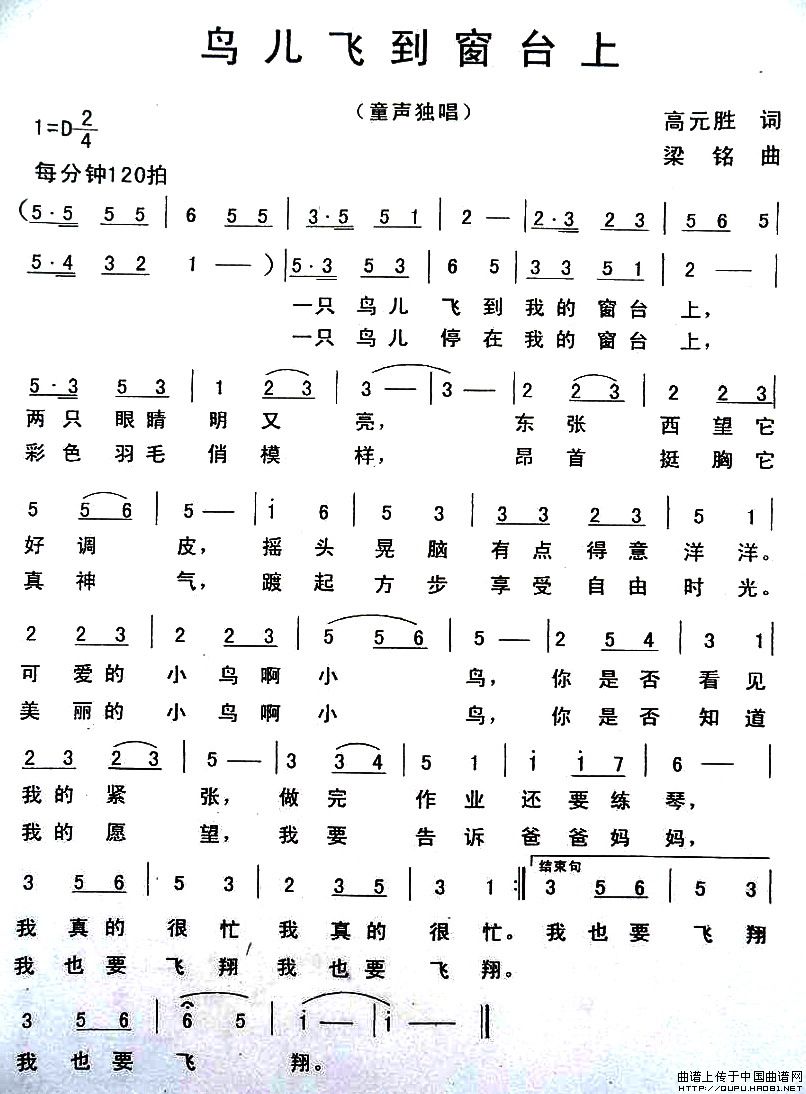 鸟儿飞到窗台上
（童声独唱）
1=D 2/4
高元胜 词
梁铭 曲
每分钟120拍
(5·5 5 5 | 6 5 5 | 3·5 5 1 | 2 — | 2·3 2 3 | 5 6 5 |
5·4 3 2 1 — ) | 5·3 5 3 | 6 5 | 3 3 5 1 | 2 — |
一只鸟儿 飞到我的窗台上，
一只鸟儿 停在我的窗台上，
5·3 5 3 | 1 2 3 | 3 — | 3 — | 2 2 3 | 2 2 3 |
两只眼睛明又亮， 东张西望它
彩色羽毛俏模样， 昂首挺胸它
5 5 6 | 5 — | i 6 | 5 3 | 3 3 2 3 | 5 1 |
好调皮，摇头晃脑有点得意洋洋。
真神气，踱起方步享受自由时光。
2 2 3 | 2 2 3 | 5 5 6 | 5 — | 2 5 4 | 3 1 |
可爱的小鸟啊小鸟，你是否看见
美丽的小鸟啊小鸟，你是否知道
2 3 2 3 | 5 — | 3 3 4 | 5 1 | i i 7 | 6 — |
我的紧张，做完作业还要练琴，
我的愿望，我要告诉爸爸妈妈，
结束句
3 5 6 | 5 3 | 2 3 5 | 3 1 :‖ 3 5 6 | 5 3 |
我真的很忙我真的很忙。我也要飞翔
我也要飞翔我也要飞翔。
3 5 6 | 6 5 | i — | i — ‖
我也要飞翔。
曲谱上传于中国曲谱网
HTTP://QUPU.HAO81.NET